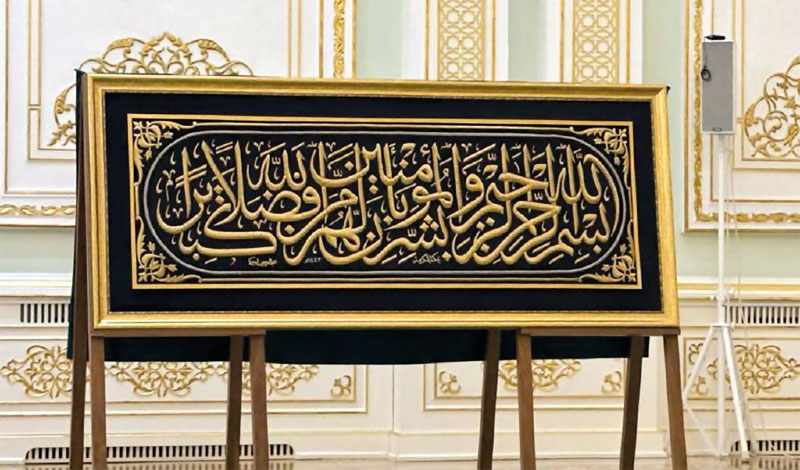 بسم الله الرحمن الرحيم وبشر المؤمنين بأن لهم من الله فضلا كبيرا